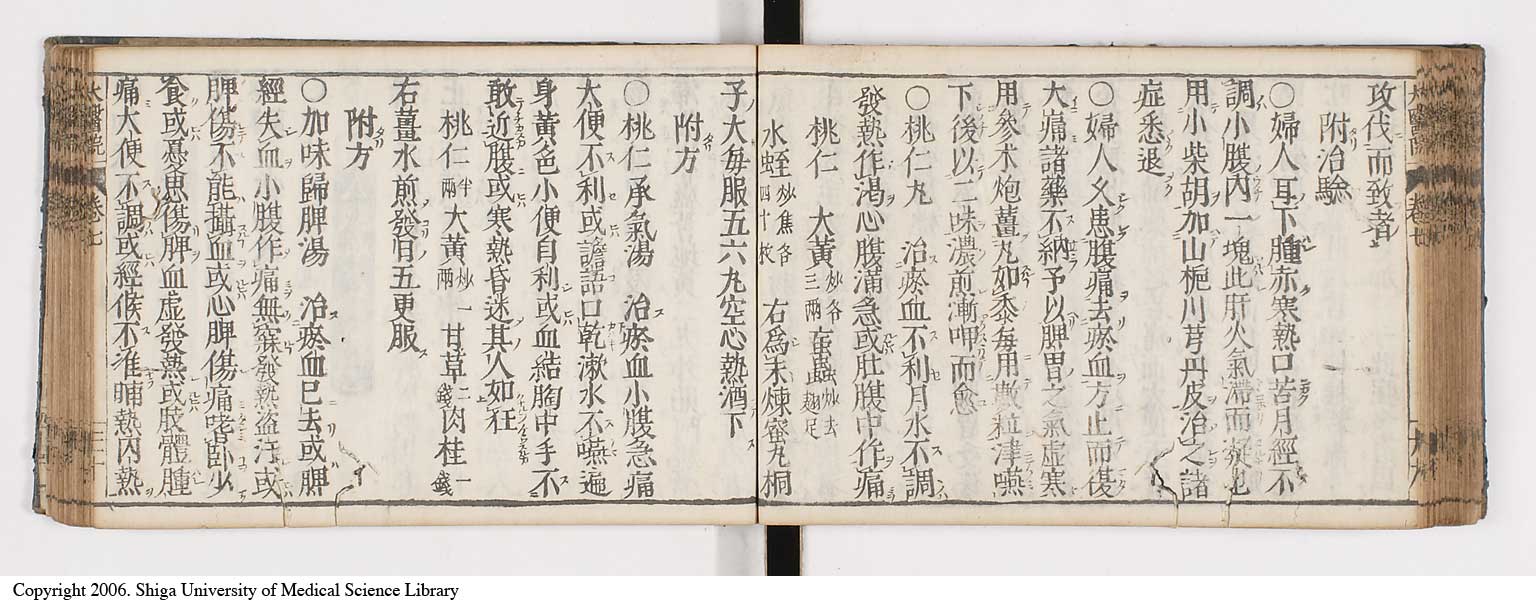 攻伐而致者
附治驗
○婦人耳下腫赤寒熱口苦月經不
調小腹內一塊此肝火氣滯而凝也
用小柴胡加山梔川芎丹皮治之諸
症悉退
○婦人久患腹痛去瘀血方止而復
大痛諸藥不納予以脾胃之氣虛寒
用參朮炮薑丸如黍每用數粒津嚥
下後以二味濃煎漸呷而愈
○桃仁丸 治瘀血不利月水不調
發熱作渴心腹滿急或肚腹中作痛
桃仁 大黃炒各三兩 䖟蟲炒去翅足
水蛭炒焦各四十枚 右爲末煉蜜丸桐
子大每服五六丸空心熱酒下
附方
○桃仁承氣湯 治瘀血小腹急痛
大便不利或譫語口乾漱水不嚥遍
身黃色小便自利或血結胸中手不
敢近腹或寒熱昏迷其人如狂
桃仁半兩 大黃炒一兩 甘草二錢 肉桂一錢
右薑水煎發日五更服
附方
○加味歸脾湯 治瘀血已去或脾
經失血小腹作痛無寐發熱盜汗或
脾傷不能攝血或心脾傷痛嗜臥少
食或憂思傷脾血虛發熱或肢體腫
痛大便不調或經候不准晡熱內熱
Copyright 2006. Shiga University of Medical Science Library